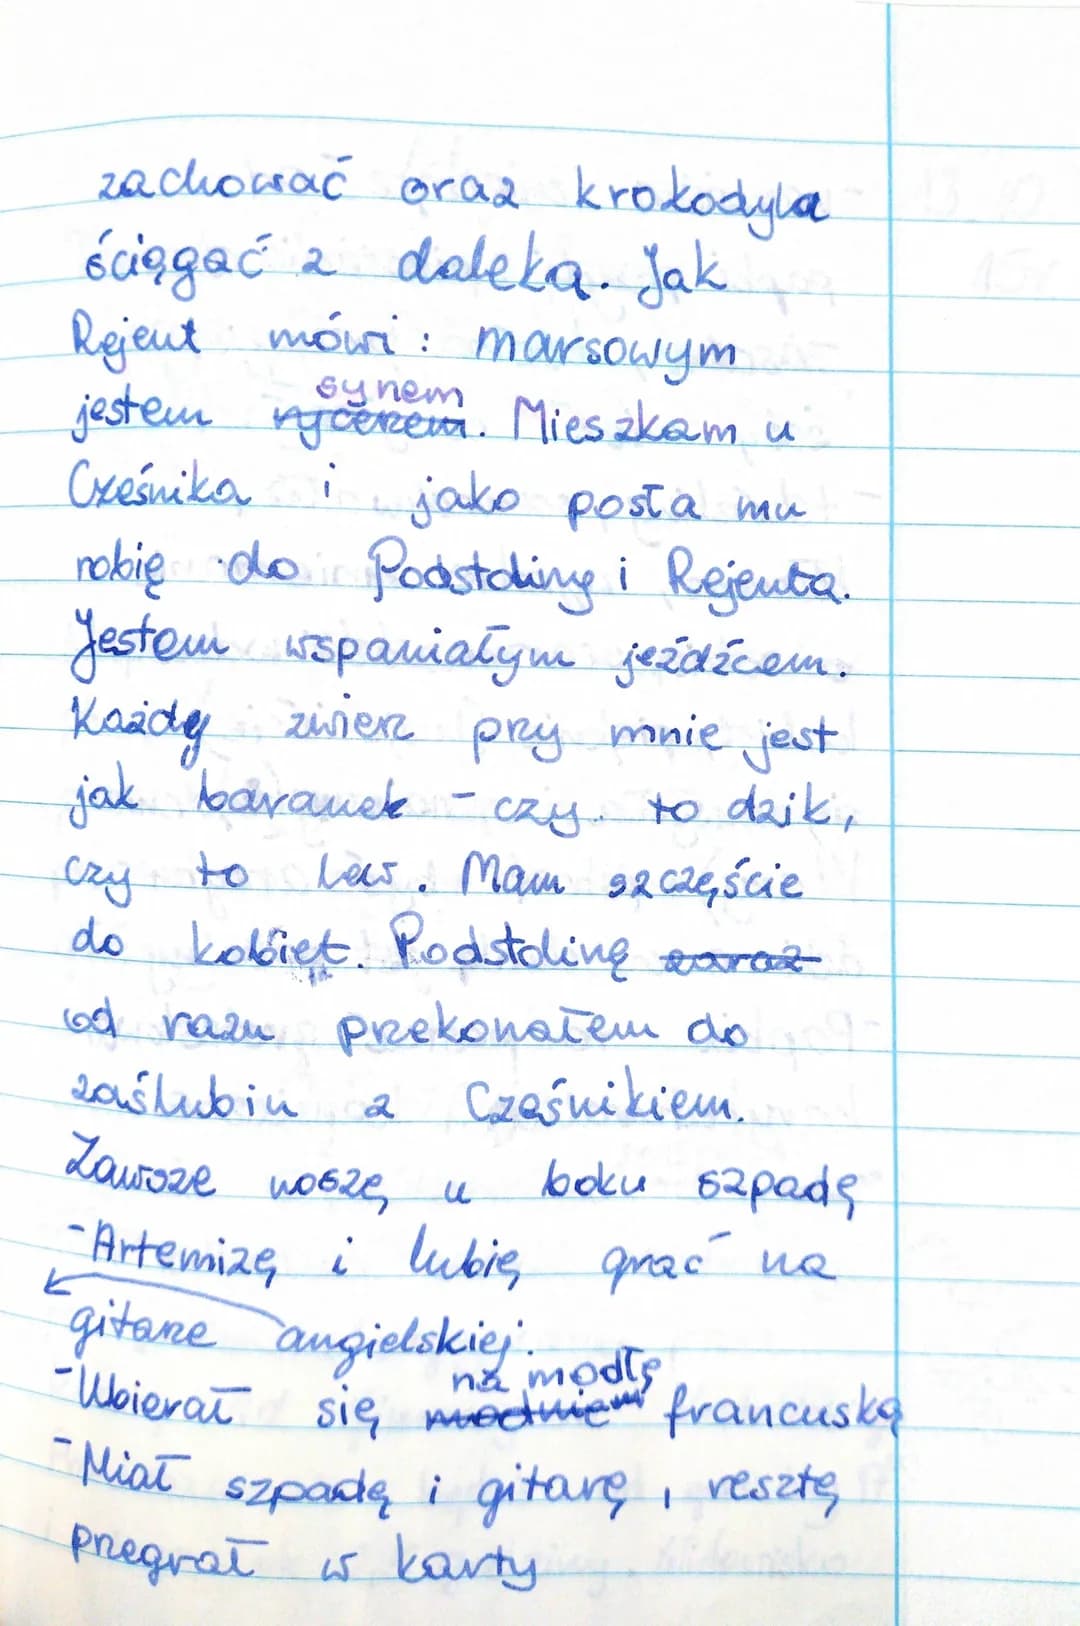 zachować oraz krokodyla
ściągać z daleka. Jak
Rejent mówi: marsowym
synem
jestem rycerzem. Mieszkam u
Cześnika i jako posła mu
robię do Podstoliny i Rejenta.
Jestem wspaniałym jeźdźcem.
Każdy zwierz przy mnie jest
jak baranek - czy to dzik,
czy to lew. Mam szczęście
do kobiet. Podstolinę zaraz
od razu przekonałem do
zaślubin z Cześnikiem.
Zawsze noszę u boku szpadę
-Artemizę i lubię grać na
gitarze angielskiej.
na modłę
-Ubierał się modnie francuską
-Miał szpadę i gitarę, resztę
przegrał w karty